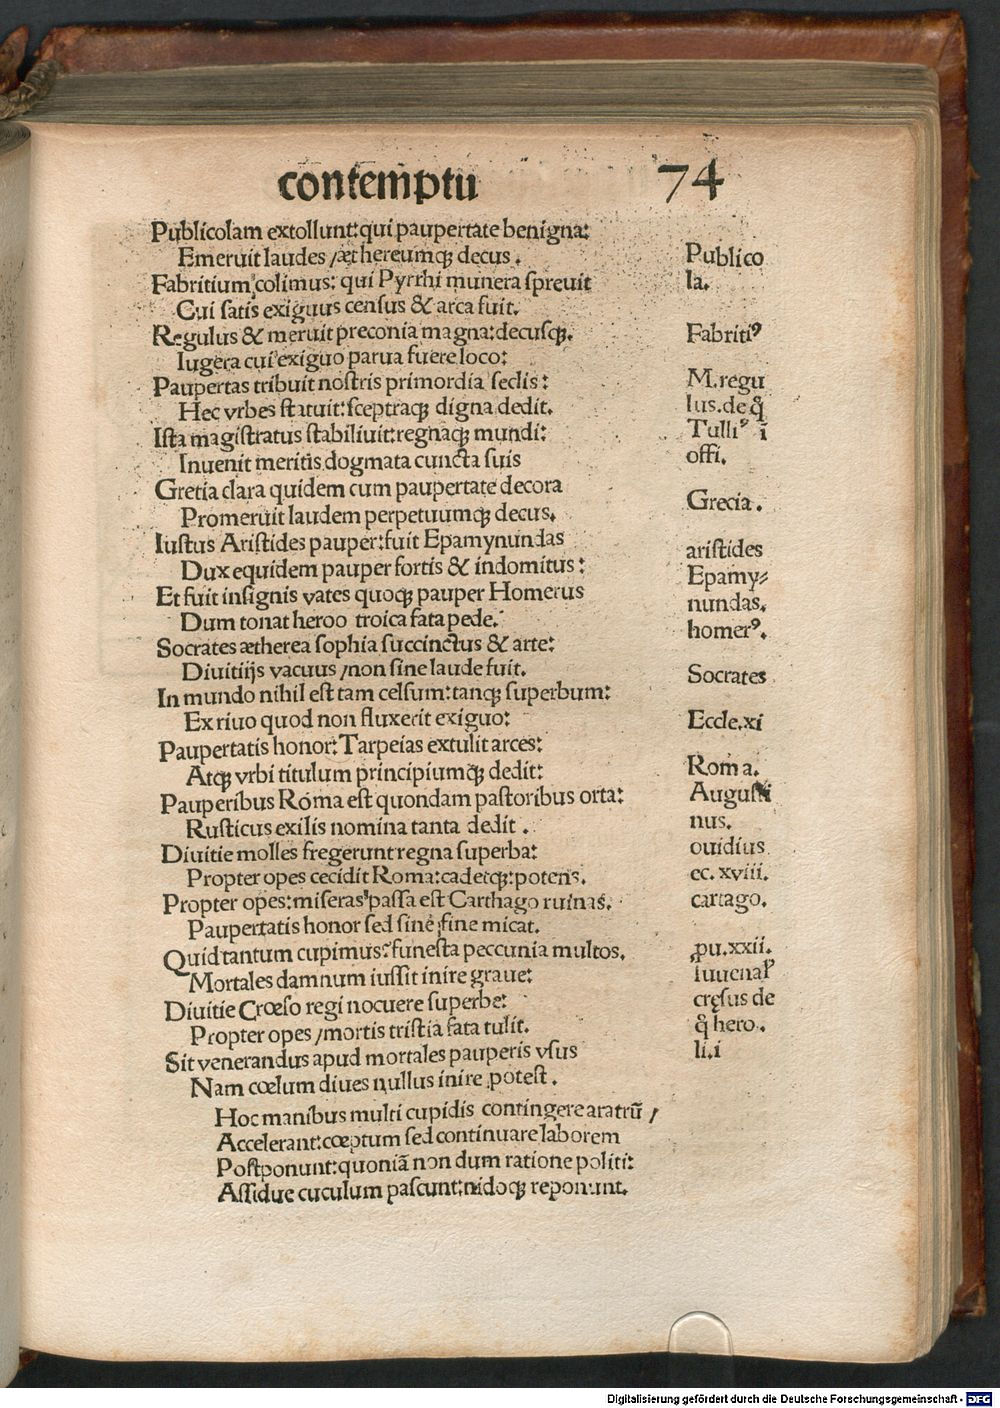 contem̄ptu 74
Publicolam extollunt: qui paupertate benigna:
Emeruit laudes / æthereumqꝫ decus.
Fabritium colimus: qui Pyrrhi munera spreuit
Cui satis exiguus census & arca fuit.
Regulus & meruit preconia magna: decusqꝫ.
Iugera cui exiguo parua fuere loco:
Paupertas tribuit nostris primordia seclis:
Hec vrbes statuit: sceptraqꝫ digna dedit.
Ista magistratus stabiliuit: regnaqꝫ mundi:
Inuenit meritis dogmata cuncta suis
Gretia clara quidem cum paupertate decora
Promeruit laudem perpetuumqꝫ decus.
Iustus Aristides pauper: fuit Epamynundas
Dux equidem pauper fortis & indomitus:
Et fuit insignis vates quoqꝫ pauper Homerus
Dum tonat heroo troica fata pede.
Socrates ætherea sophia succinctus & arte:
Diuitijs vacuus / non sine laude fuit.
In mundo nihil est tam celsum: tanqꝫ superbum:
Ex riuo quod non fluxerit exiguo:
Paupertatis honor: Tarpeias extulit arces:
Atqꝫ vrbi titulum principiumqꝫ dedit:
Pauperibus Roma est quondam pastoribus orta:
Rusticus exilis nomina tanta dedit.
Diuitie molles fregerunt regna superba:
Propter opes cecidit Roma: cadetqꝫ: potens.
Propter opes: miseras passa est Carthago ruinas.
Paupertatis honor sed sine fine micat.
Quid tantum cupimus? funesta peccunia multos.
Mortales damnum iussit inire graue:
Diuitie Crœso regi nocuere superbe:
Propter opes / mortis tristia fata tulit.
Sit venerandus apud mortales pauperis vsus
Nam cœlum diues nullus inire potest.
Hoc manibus multi cupidis contingere aratrū /
Accelerant: cœptum sed continuare laborem
Postponunt: quoniā non dum ratione politi:
Assidue cuculum pascunt: nidoqꝫ reponunt.
Publico
la.
Fabritiꝰ
M. regu
lus. de q̊
Tulliꝰ ī
offi.
Grecia.
aristides
Epamy⸗
nundas.
homerꝰ.
Socrates
Eccle. xi
Roma.
Augusti
nus.
ouidius
ec. xviii.
cartago.
pu. xxii.
cręsus de
q̊ hero.
li. i
Digitalisierung gefördert durch die Deutsche Forschungsgemeinschaft - DFG